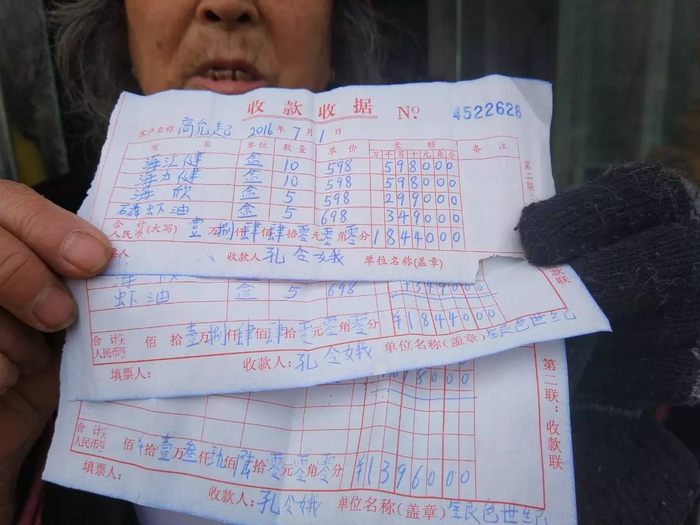 收款收据 No. 4522628
客户名称 高允起 2016年7月1日
项目 单位 数量 单价 金额 备注
万千百十元角分
海江健 盒 10 598 598000
海力健 盒 10 598 598000
海欣 盒 5 598 299000
磷虾油 盒 5 698 349000
合计人民币(大写) 壹万捌仟肆佰肆拾零元零角零分 1844000
收款人 孔令娥 单位名称(盖章)
第二联
票人
虾油 盒 5 698 349000
合计人民币 佰拾壹万捌仟肆佰肆拾零元零角零分 ¥1844000
填票人: 收款人: 孔令娥 单位名称(盖章)
款联
98000
合计人民币 佰拾壹万叁仟玖佰陆拾零元零角零分 ¥1396000
填票人: 收款人: 孔令娥 单位名称(盖章)
第二联:收款联